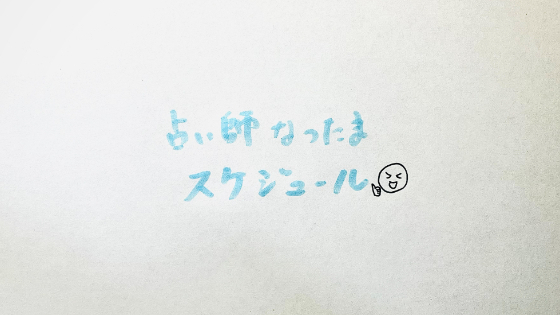 占い師 なったま
スケジュール